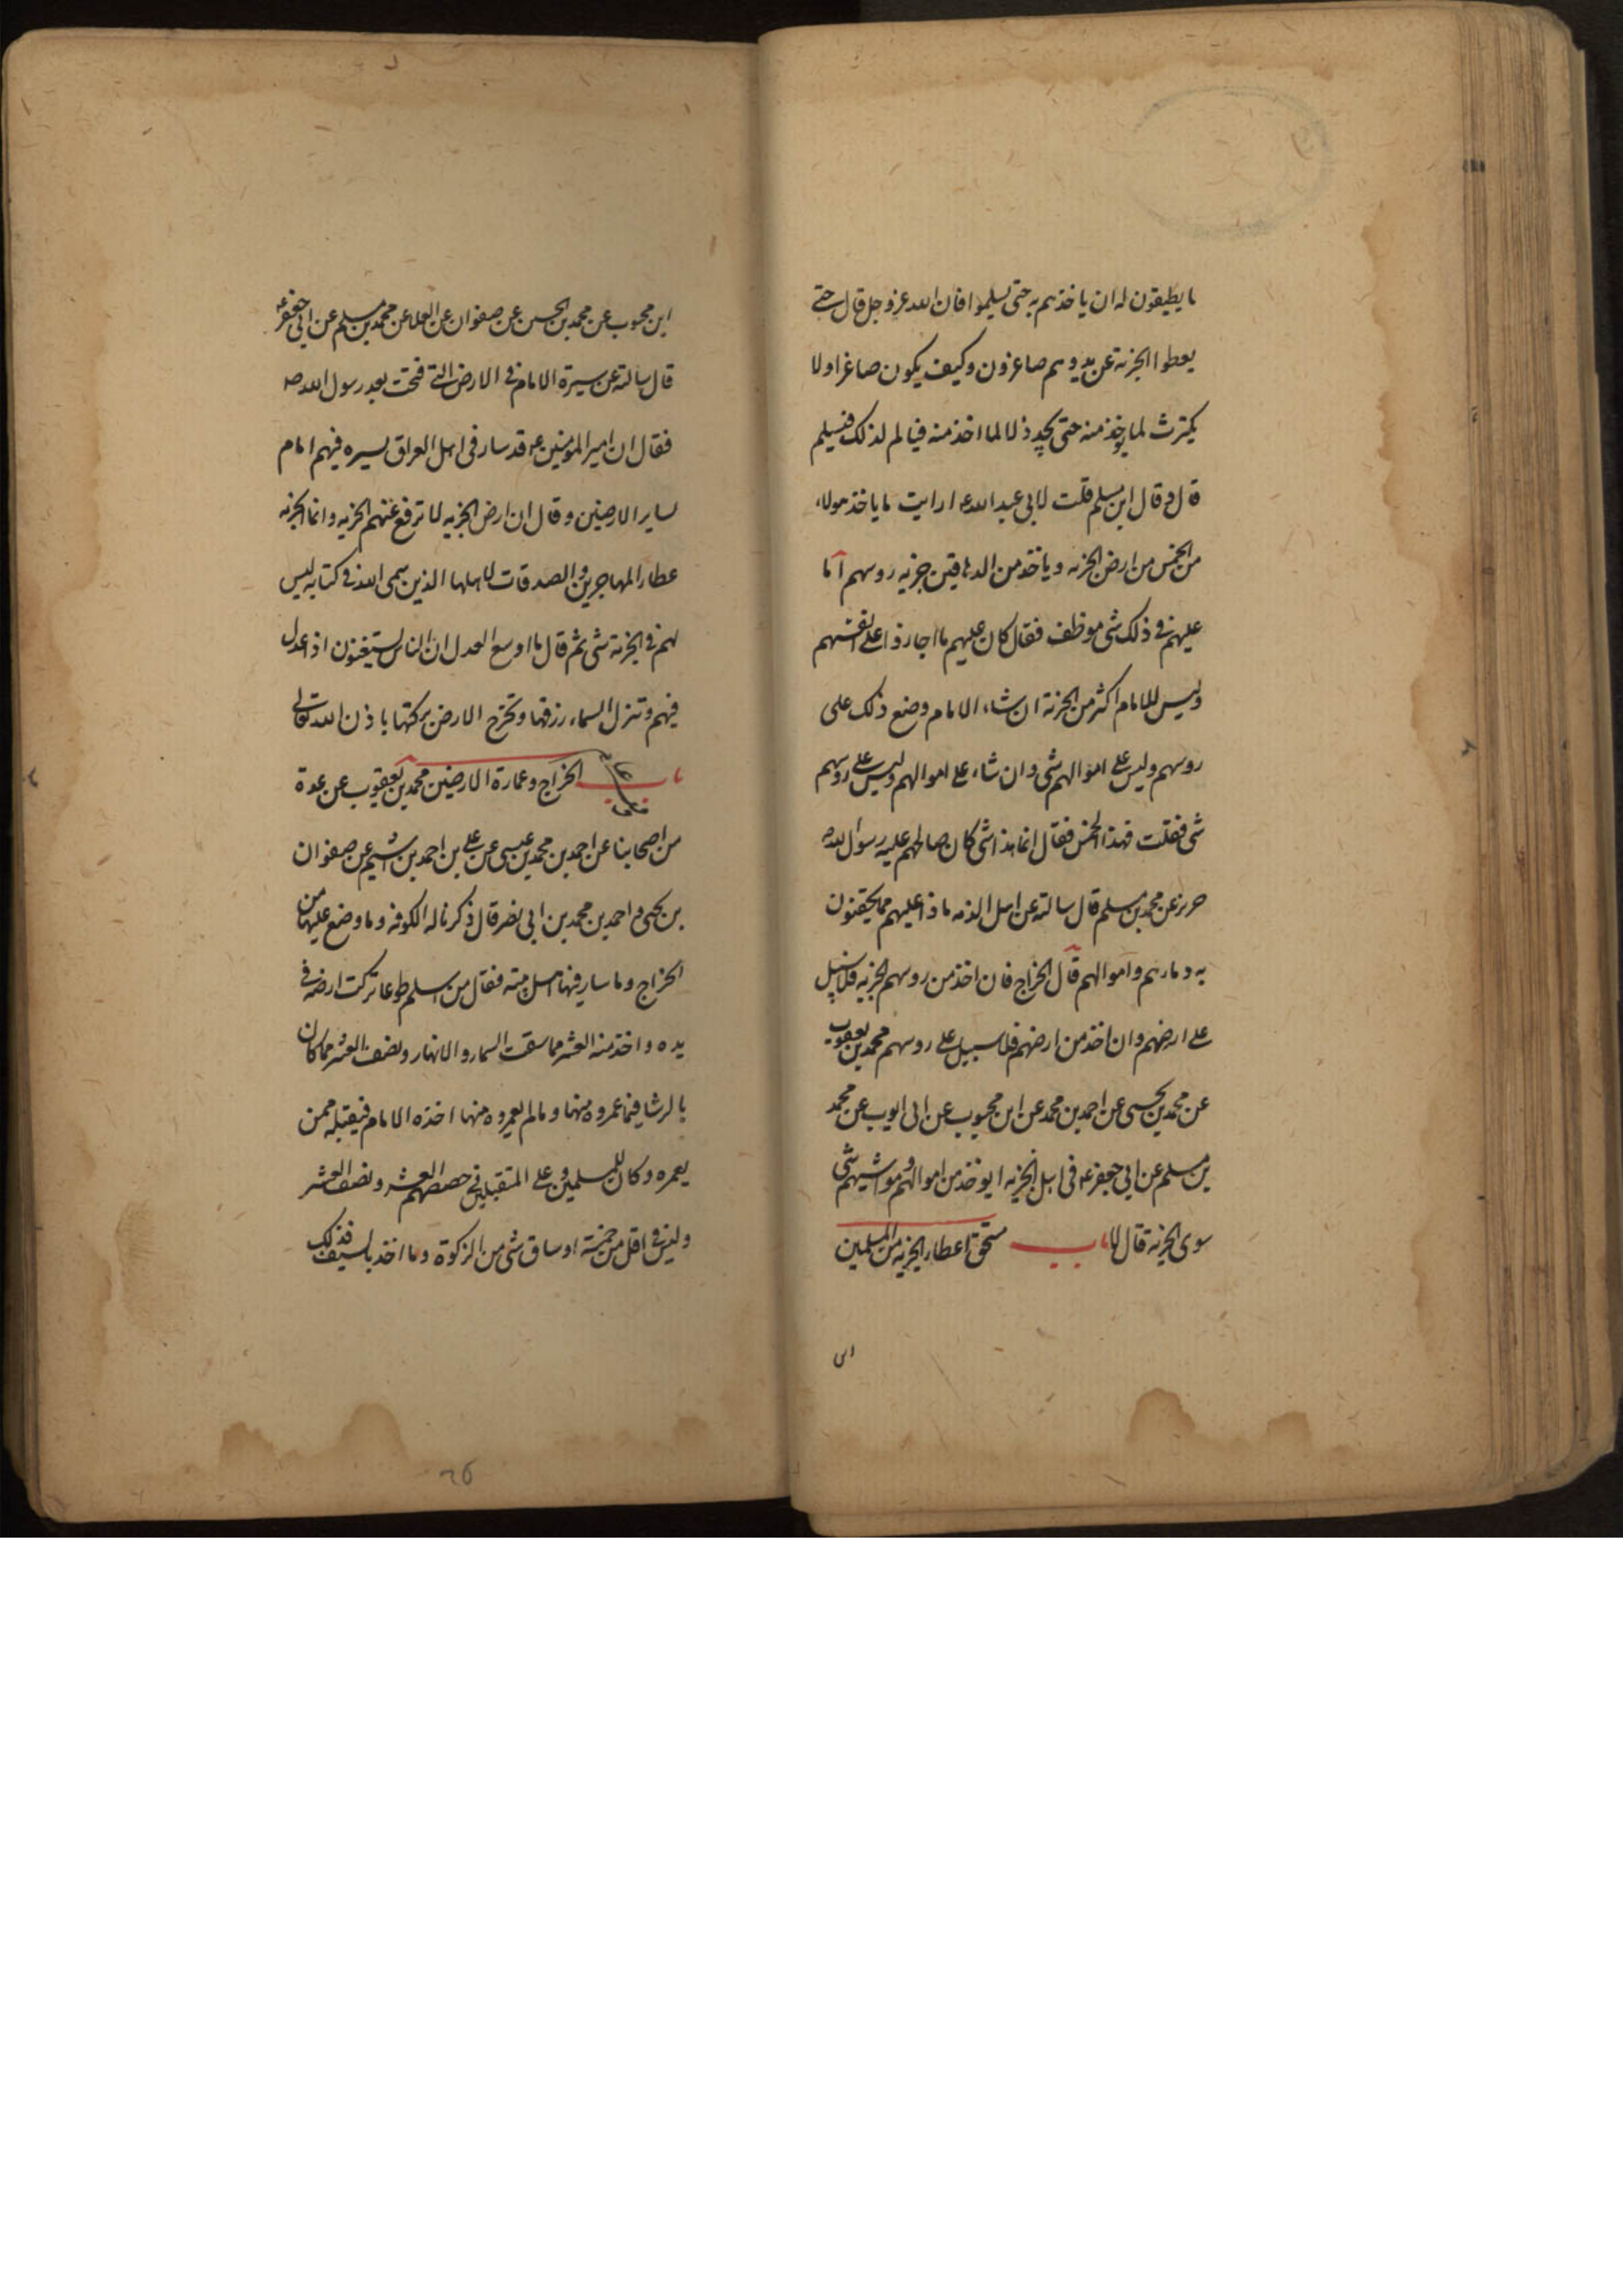 ما يطيقون له ان ياخذهم به حتى يسلموا فان الله عز وجل قال حتى
يعطوا الجزية عن يد وهم صاغرون وكيف يكون صاغرا ولا
يكترث لما يوخذ منه حتى يجد ذلا لما اخذ منه فيالم لذلك فيسلم
قال وقال ابن مسلم قلت لابي عبد الله ع ارايت ما ياخذ هولاء
من الخمس من ارض الجزيه وياخذ من الدهاقين جزيه روسهم اما
عليهم في ذلك شى موظف فقال كان عليهم ما اجازوا على انفسهم
وليس للامام اكثر من الجزية ان شاء الامام وضع ذلك على
روسهم وليس على اموالهم شى وان شاء على اموالهم وليس على روسهم
شى فقلت فهذا الخمس فقال انما هذا شى كان صالحهم عليه رسول الله
حريز عن محمد بن مسلم قال سالته عن اهل الذمه ماذا عليهم مما يحقنون
به دماءهم واموالهم قال الخراج فان اخذ من روسهم الجزيه فلا سبيل
على ارضهم وان اخذ من ارضهم فلا سبيل على روسهم محمد بن يعقوب
عن محمد بن يحيى عن احمد بن محمد عن ابن محبوب عن ابى ايوب عن محمد
بن مسلم عن ابي جعفر ع في اهل الجزيه ايوخذ من اموالهم ومواشيهم شى
سوى الجزية قال لا باب مستحق اعطاء الجزيه من المسلمين
ابن محبوب عن محمد بن الحسن عن صفوان عن العلا عن محمد بن مسلم عن ابي جعفر ع
قال سالته عن سيرة الامام في الارض التي فتحت بعد رسول الله ص
فقال ان امير المومنين ع قد سار في اهل العراق بسيره فيهم امام
لساير الارضين وقال ان ارض الجزيه لا ترفع عنهم الجزيه وانما الجزيه
عطاء المهاجرين والصدقات لاهلها الذين سمى الله في كتابه ليس
لهم في الجزية شى ثم قال ما اوسع العدل ان الناس يستغنون اذا عدل
فيهم وتنزل السماء رزقها وتخرج الارض بركتها باذن الله تعالى
باب الخراج وعمارة الارضين محمد بن يعقوب عن عدة
من اصحابنا عن احمد بن محمد بن عيسى عن على بن احمد بن اشيم عن صفوان
بن يحيى و احمد بن محمد بن ابي نصر قال ذكرنا له الكوفه وما وضع عليها من
الخراج وما سار فيها اهل بيته فقال من اسلم طوعا تركت ارضه في
يده واخذ منه العشر مما سقت السماء والانهار ونصف العشر مما كان
بالرشا فيما عمروه منها وما لم يعمروه منها اخذه الامام فيقبله ممن
يعمره وكان للمسلمين وعلى المتقبلين في حصصهم العشر ونصف العشر
وليس في اقل من خمسة اوساق شى من الزكوة وما اخذ بالسيف فذلك